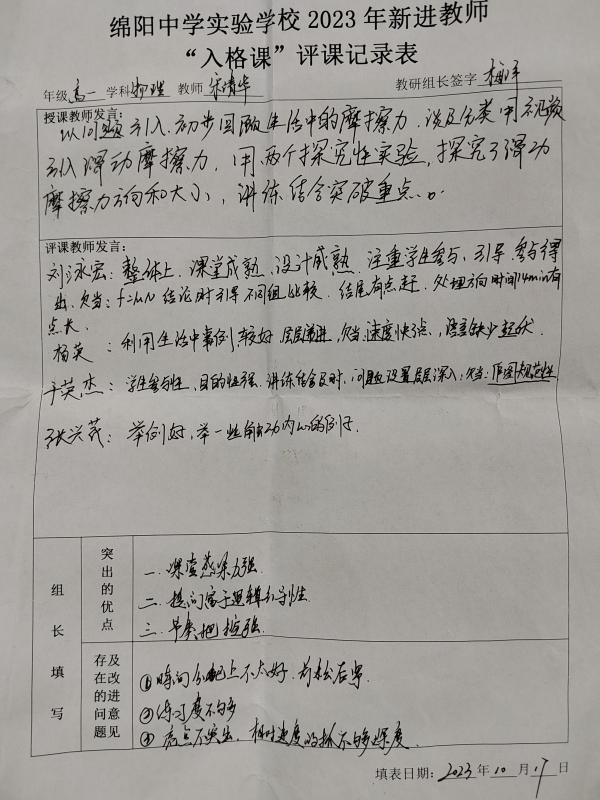 绵阳中学实验学校2023年新进教师
“入格课”评课记录表
年级 高一 学科 物理 教师 宋清华 教研组长签字
授课教师发言:
以问题引入,初步回顾生活中的摩擦力,谈及分类,用视频
引入滑动摩擦力,用两个探究性实验,探究了滑动
摩擦力方向和大小,讲练结合突破重点。
评课教师发言:
刘泳宏:整体上,课堂成熟,设计成熟,注重学生参与,引导,参与得
出.欠当:f=μN结论时引导不同组比较.结尾有点赶.处理方向时间14min有
点长.
杨英:利用生活中事例,较好,层层递进,欠当:速度快了点,语言缺少起伏.
于英杰:学生参与性,目的性强.讲练结合及时,问题设置层层深入;欠当:作图规范性
张兴芪:举例好,举一些的例子.
组长填写
突出的优点
一.课堂感染力强.
二.提问富于逻辑引导性.
三.节奏把控强.
存在的问题及改进意见
①时间分配上不太好.前松后紧
②练习度不够
③亮点不突出,相对速度的抓不够深度.
填表日期:2023年10月17日